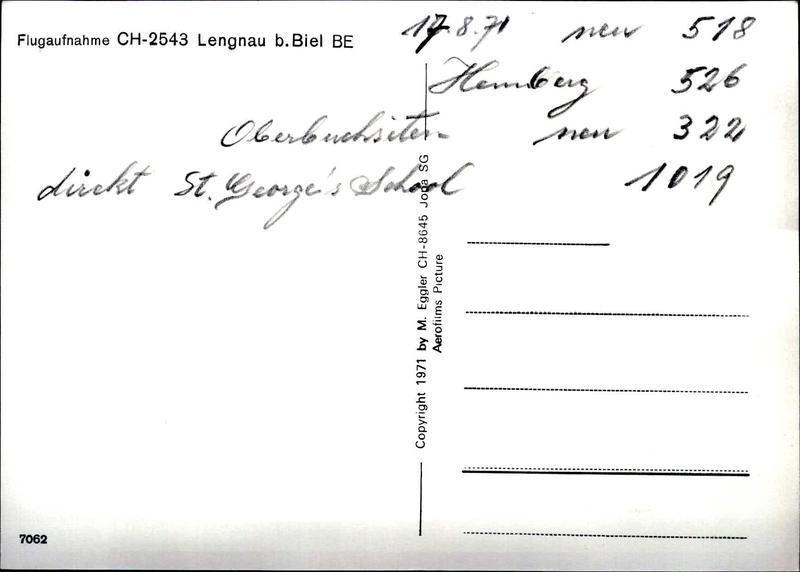 Flugaufnahme CH-2543 Lengnau b. Biel BE
17.8.71 neu 518
Hemberg 526
Oberbuchsiten neu 322
direkt St. George's School 1019
Copyright 1971 by M. Eggler CH-8645 Jona SG
Aerofilms Picture
7062